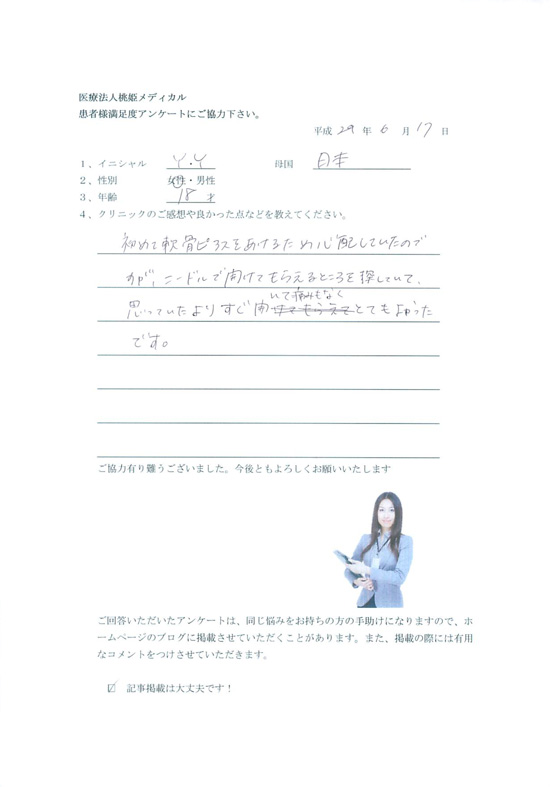 医療法人桃姫メディカル
患者様満足度アンケートにご協力下さい。
平成 29 年 6 月 17 日
1、イニシャル Y.Y 母国 日本
2、性別 女性・男性
3、年齢 18 才
4、クリニックのご感想や良かった点などを教えてください。
初めて軟骨ピアスをあけるため心配していたので
すが、ニードルで開けてもらえるところを探していて、
いて痛みもなく
思っていたよりすぐ開けてもらえてとてもよかった
です。
ご協力有り難うございました。今後ともよろしくお願いいたします
ご回答いただいたアンケートは、同じ悩みをお持ちの方の手助けになりますので、ホ
ームページのブログに掲載させていただくことがあります。また、掲載の際には有用
なコメントをつけさせていただきます。
☑ 記事掲載は大丈夫です！